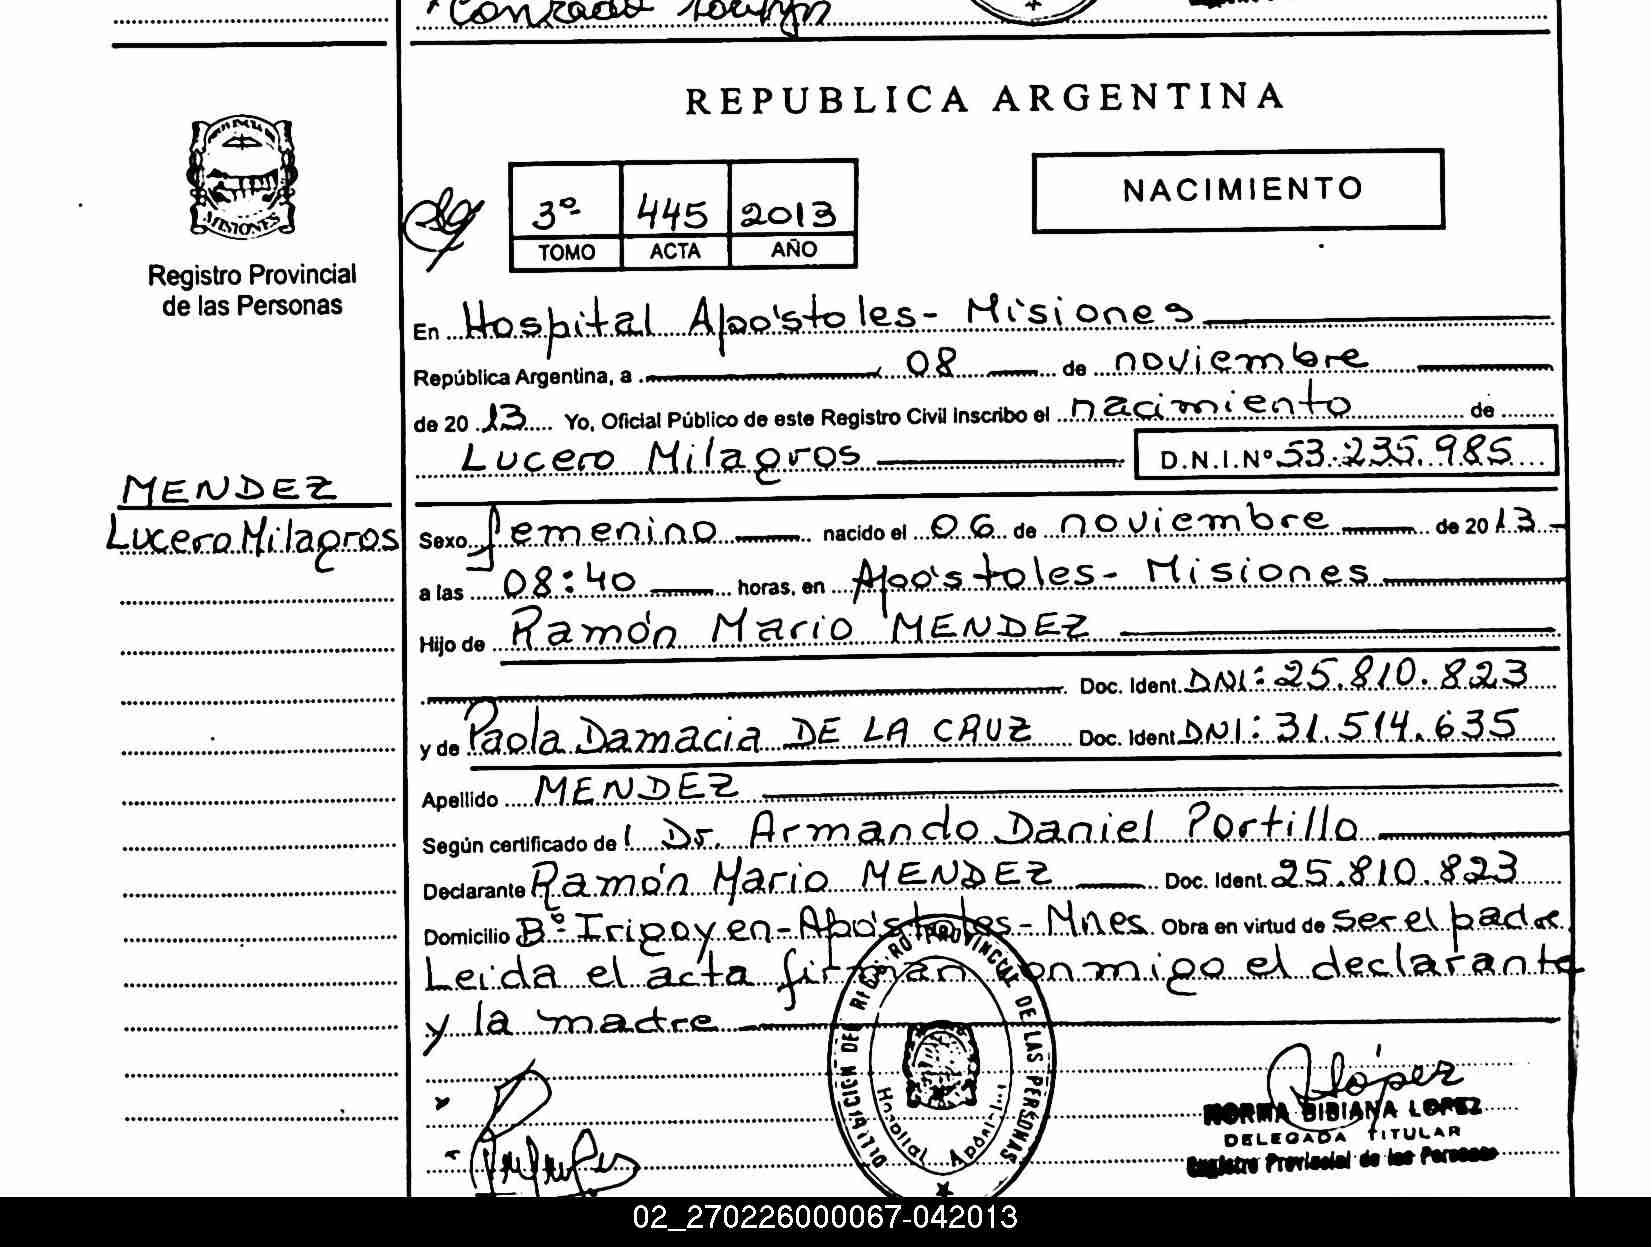 REPUBLICA ARGENTINA
MISIONES
Registro Provincial
de las Personas
3º 445 2013
TOMO ACTA AÑO
NACIMIENTO
En Hospital Apóstoles- Misiones
República Argentina, a 08 de noviembre
de 2013 Yo, Oficial Público de este Registro Civil inscribo el nacimiento de
Lucero Milagros D.N.I.Nº 53.235.985
MENDEZ
Lucero Milagros
Sexo femenino nacido el 06 de noviembre de 2013
a las 08:40 horas, en Apóstoles- Misiones
Hijo de Ramón Mario MENDEZ
Doc. Ident. DNI: 25.810.823
y de Paola Damacia DE LA CRUZ Doc. Ident. DNI: 31.514.635
Apellido MENDEZ
Según certificado de l Dr. Armando Daniel Portillo
Declarante Ramón Mario MENDEZ Doc. Ident. 25.810.823
Domicilio Bº Irigoyen-Apóstoles- Mnes Obra en virtud de ser el padre
Leída el acta firman conmigo el declarante
y la madre
REGISTRO PROVINCIAL DE LAS PERSONAS
Hospital Apóstoles
López
NORMA BIBIANA LOPEZ
DELEGADA TITULAR
Registro Provincial de las Personas
02_270226000067-042013